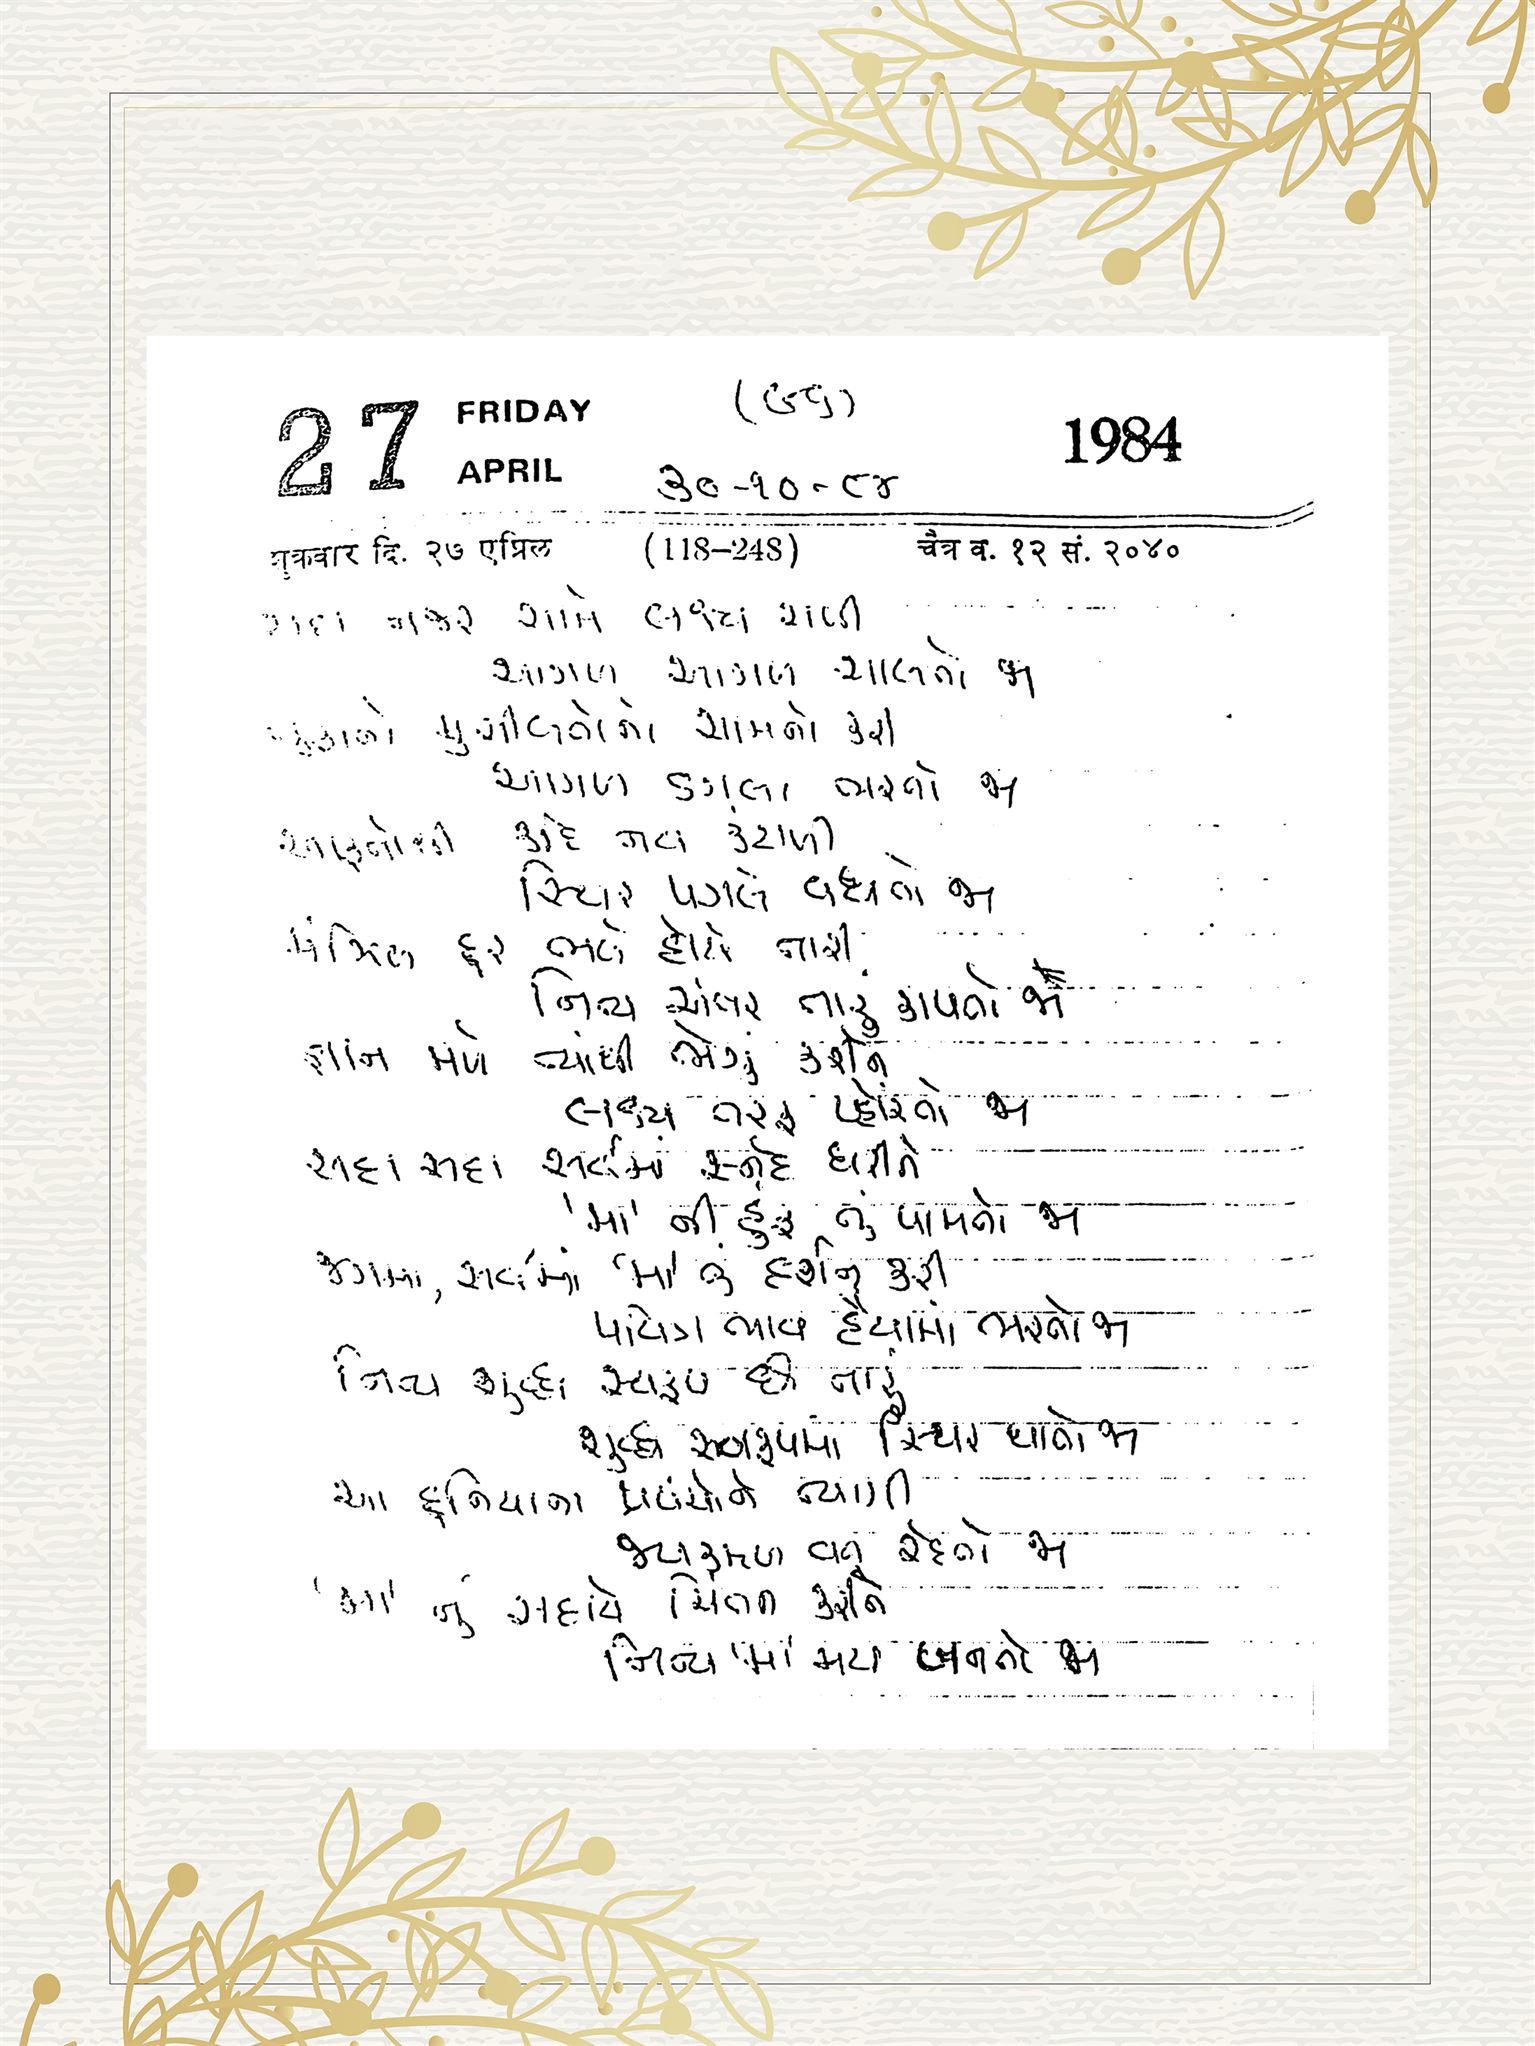 27 FRIDAY APRIL
(૭૬)
1984
૩૦-૧૦-૮૪
शुक्रवार दि. २७ एप्रिल (118-248) चैत्र व. १२ सं. २०४०
સદા નજર સામે લક્ષ્ય રાખી
આગળ આગળ ચાલતો જા
મુસીબતોનો સામનો કરી
આગળ ડગલા ભરતો જા
કદિ નવ કંટાળી
સ્થિર પગલે વધતો જા
મંઝિલ દુર ભલે હોયે તારી
નિત્ય અંતર તારું કાપતો જા
જ્ઞાન મળે ત્યાંથી ભેગું કરીને
લક્ષ્ય તરફ પ્હોંચતો જા
સદા સદા સર્વમાં સ્નેહ ધરીને
'મા' ની હુંફ તું પામતો જા
જગમાં, સર્વમાં 'મા' નું દર્શન કરી
પવિત્ર ભાવ હૈયામાં ભરતો જા
નિત્ય શુદ્ધ સ્વરૂપ છે તારું
શુદ્ધ સ્વરૂપમાં સ્થિર થાતો જા
આ દુનિયાના પ્રપંચોને ત્યાગી
જળકમળ વત્ રહેતો જા
'મા' નું સદાયે ચિંતન કરીને
નિત્ય 'મા' મય બનતો જા